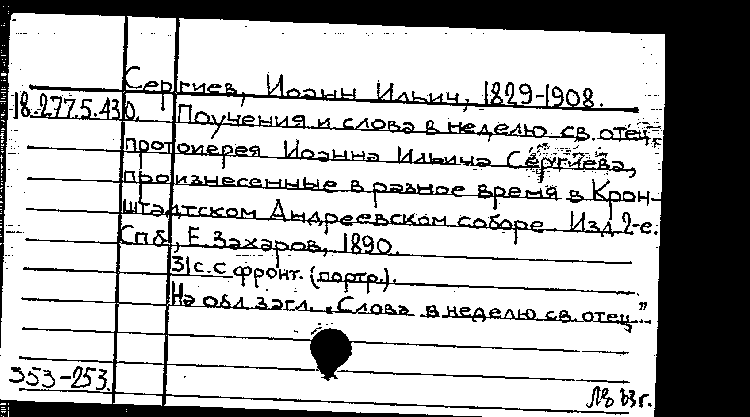 Сергиев, Иоанн Ильич, 1829-1908.
18.277.5.430. Поучения и слова в неделю св. отец,
протоиерея Иоанна Ильича Сергиева,
произнесенные в разное время в Крон-
штадтском Андреевском соборе. Изд. 2-е.
Спб., Е. Захаров, 1890.
31 с. с фронт. (портр.).
На обл. загл. „Слова в неделю св. отец”
353-253.
63 г.